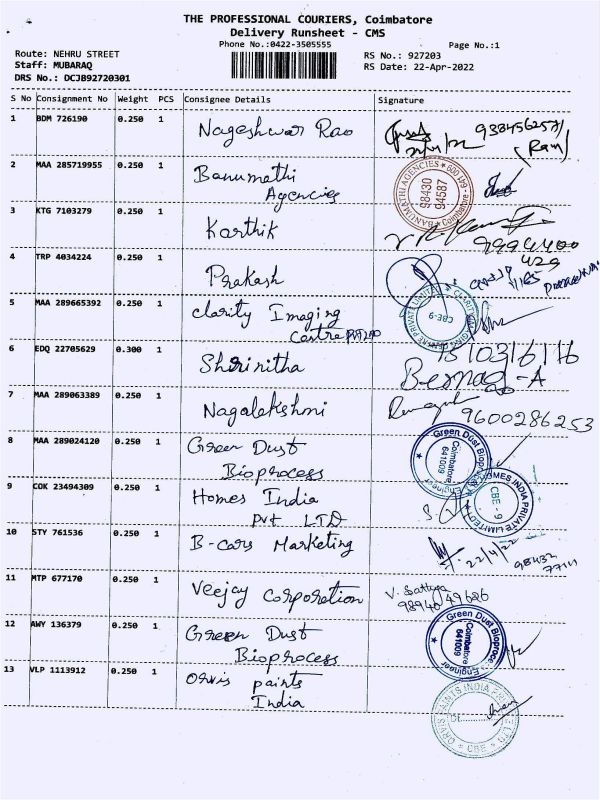 THE PROFESSIONAL COURIERS, Coimbatore
Delivery Runsheet - CMS
Phone No.:0422-3505555
Page No.:1
Route: NEHRU STREET
Staff: MUBARAQ
DRS No.: DCJB92720301
RS No.: 927203
RS Date: 22-Apr-2022
S No Consignment No Weight PCS Consignee Details Signature
1 BDM 726190 0.250 1 Nageshwar Rao
(Ram)
2 MAA 285719955 0.250 1 Banumathi
Agencies
BANUMATHI AGENCIES Coimbatore
98430
94587
3 KTG 7103279 0.250 1 Karthik
9994400
429
4 TRP 4034224 0.250 1 Prakash
5 MAA 289665392 0.250 1 Clarity Imaging
Centre PVT LTD
CBE-9
6 EDQ 22705629 0.300 1 Shrinitha
7 MAA 289063389 0.250 1 Nagalakshmi
9600286253
8 MAA 289024120 0.250 1 Green Dust
Bioprocess
Green Dust Bioprocess Engineer
Coimbatore
641009
9 COK 23494309 0.250 1 Homes India
Pvt LTD
HOMES INDIA PRIVATE LIMITED
CBE - 9
10 STY 761536 0.250 1 B-cars Marketing
22/4/22
98432
11 MTP 677170 0.250 1 Veejay Corporation
V. Sathya
98946 49686
12 AWY 136379 0.250 1 Green Dust
Bioprocess
Green Dust Bioproce
Engineer
Coimbatore
641009
13 VLP 1113912 0.250 1 Orvis paints
India
ORVIS PAINTS INDIA
CBE